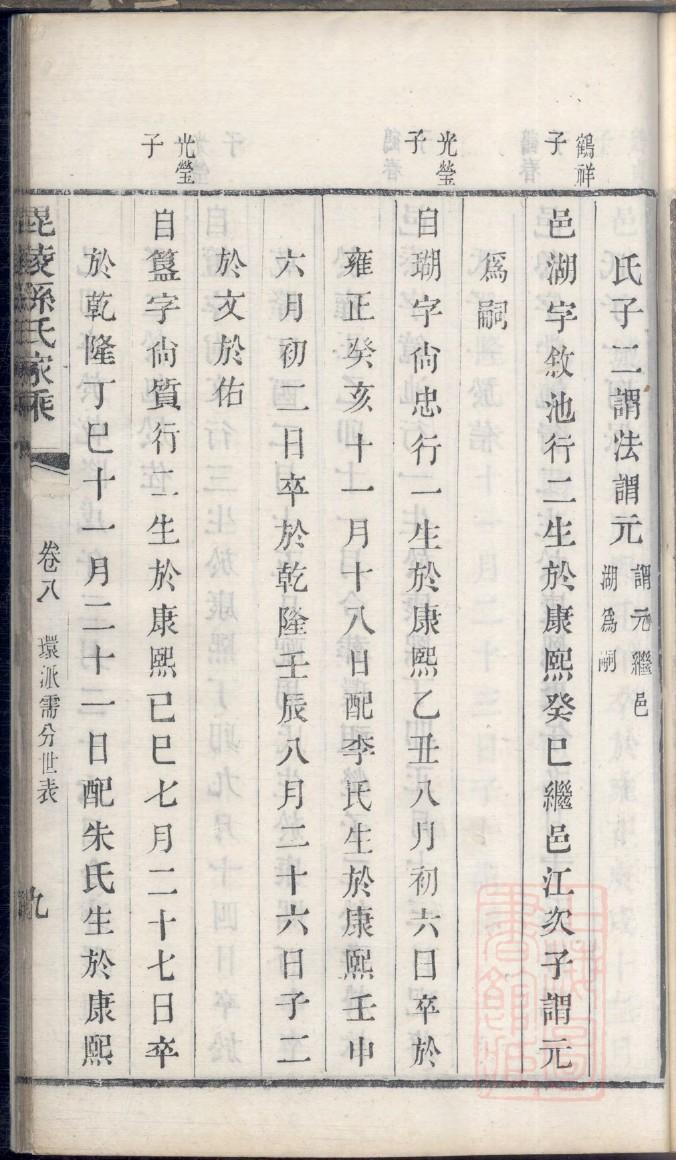 氏子二謂法謂元謂元繼邑湖爲嗣
鶴祥子
邑湖字敘池行二生於康熙癸巳繼邑江次子謂元
爲嗣
光瑩子
自瑚字尙忠行一生於康熙乙丑八月初六日卒於
雍正癸亥十一月十八日配李氏生於康熙壬申
六月初二日卒於乾隆壬辰八月二十六日子二
於文於佑
光瑩子
自簋字尙質行二生於康熙己巳七月二十七日卒
於乾隆丁巳十一月二十一日配朱氏生於康熙
毘陵孫氏家乘
卷八
環派需分世表
九